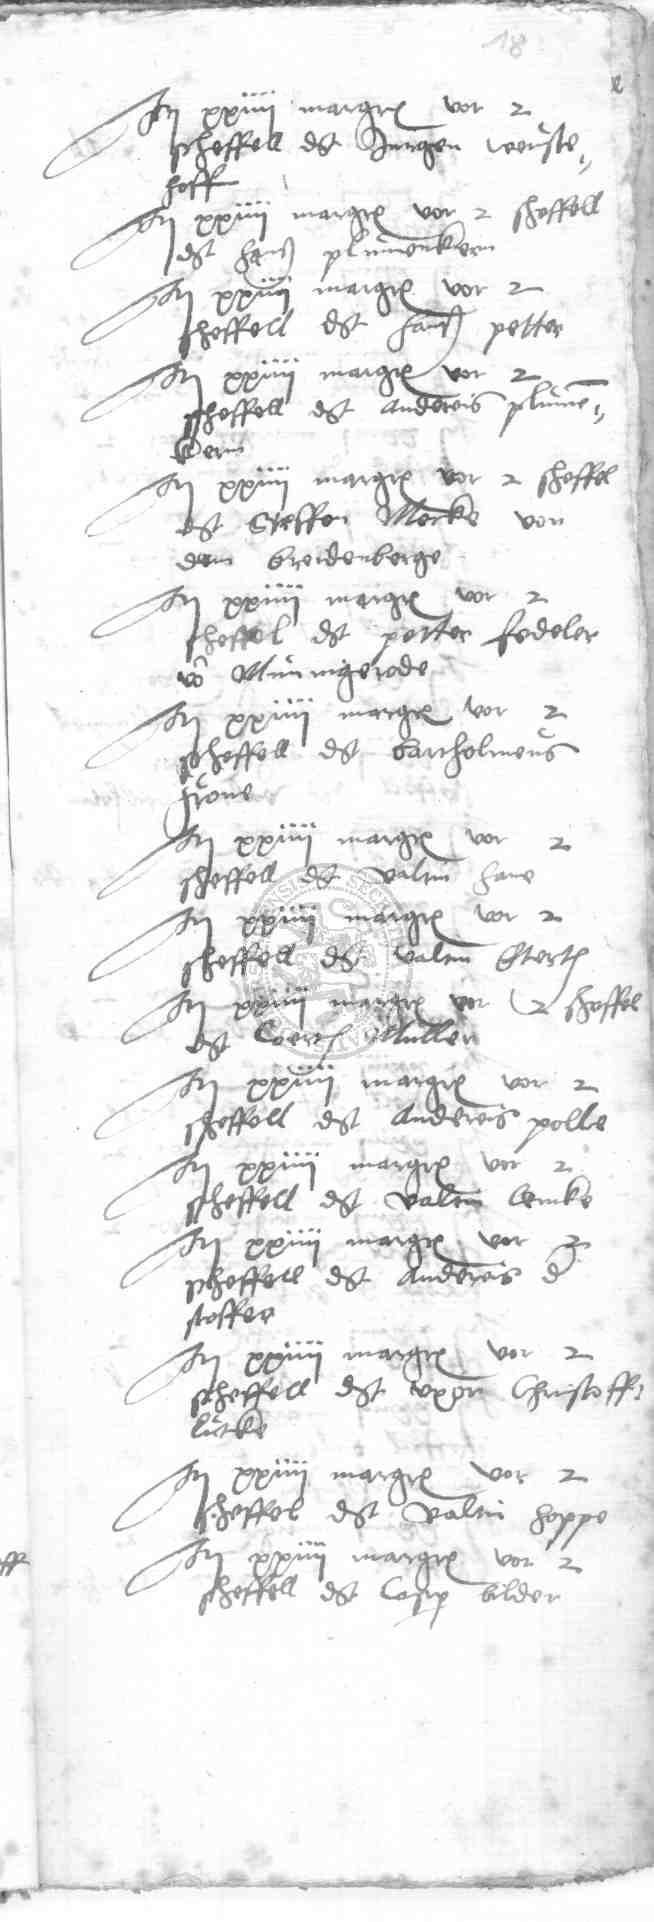 18
It xxiiii margr vor 2
scheffell dt Jurgen werste„
hoff
It xxiiii margr vor 2 scheffell
dt hanß plumenkern
It xxiiii margr vor 2
scheffell dt hanß petter
It xxiiii margr vor 2
scheffell dt andereis plume„
kern
It xxiiii margr vor 2 scheffel
dt Steffen Mecke von
dem breidenberge
It xxiiii margr vor 2
scheffel dt petter fedeler
vō Minnigerode
It xxiiii margr vor 2
scheffell dt bartholmeus
frone
It xxiiii margr vor 2
scheffell dt valtin hane
It xxiiii margr vor 2
scheffell dt valtin
It xxiiii margr vor 2 scheffel
dt Coert Muller
It xxiiii margr vor 2
scheffell dt Andereis polle
It xxiiii margr vor 2
scheffell dt valtin lemke
It xxiiii margr vor 2
scheffell dt Andereis d
stoffer
It xxiiii margr vor 2
scheffell dt uxor Christoff
lutke
It xxiiii margr vor 2
scheffel dt valtin hoppe
It xxiiii margr vor 2
scheffell dt Casp bilder